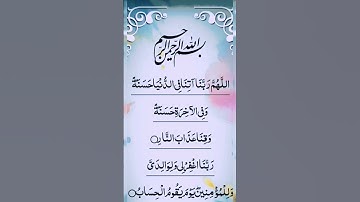 بسم الله الرحمن الرحيم
اَللّٰهُمَّ رَبَّنَا آتِنَا فِى الدُّنْيَا حَسَنَةً
وَّفِى الْآخِرَةِ حَسَنَةً
وَّقِنَا عَذَابَ النَّارِ
رَبَّنَا اغْفِرْ لِى وَلِوَالِدَىَّ
وَلِلْمُؤْمِنِيْنَ يَوْمَ يَقُوْمُ الْحِسَابُ